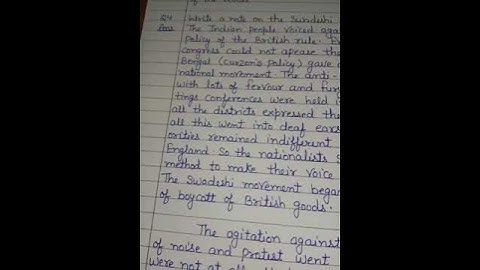 Q4 Write a note on the Swadeshi
Ans. The Indian people voiced agai
policy of the British rule.
congress could not apease the
Bengal (Curzon's policy) gave a
national movement. The anti-
with lots of fervour and fury
tings conferences were held i
all the districts expressed the
all this went into deaf ears
orities remained indifferent
England. So the nationalists s
method to make their voice
The Swadeshi movement began
of boycott of British goods.
The agitation against
of noise and protest went
were not at